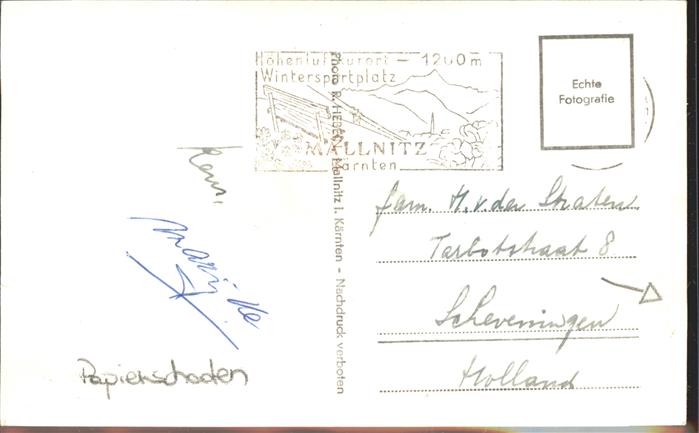 Höhenluftkurort — 1200 m
Wintersportplatz
MALLNITZ
Kärnten
Echte
Fotografie
Photo R. HEBEN, Mallnitz i. Kärnten – Nachdruck verboten
Marijke
Papierschaden
fam. H. v. der Straten
Tarbotstraat 8
Scheveningen
Holland